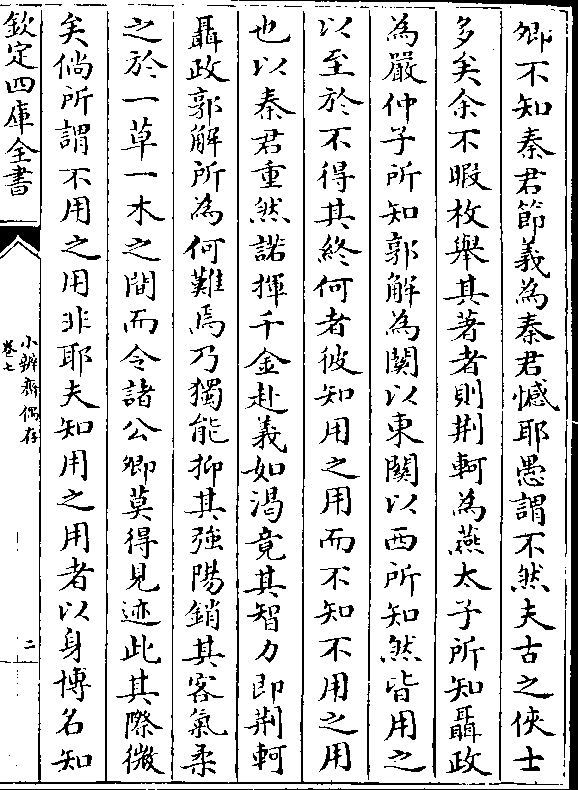 卿不知秦君節義為秦君憾耶愚謂不然夫古之俠士
多矣余不暇枚舉其著者則荆軻為燕太子所知聶政
為嚴仲子所知郭解為關以東關以西所知然皆用之
以至於不得其終何者彼知用之用而不知不用之用
也以秦君重然諾揮千金赴義如渴竟其智力即荆軻
聶政郭解所為何難焉乃獨能抑其強陽銷其客氣柔
之於一草一木之間而令諸公卿莫得見迹此其際微
矣倘所謂不用之用非耶夫知用之用者以身博名知
欽定四庫全書
小辨齋偶存
卷七
二